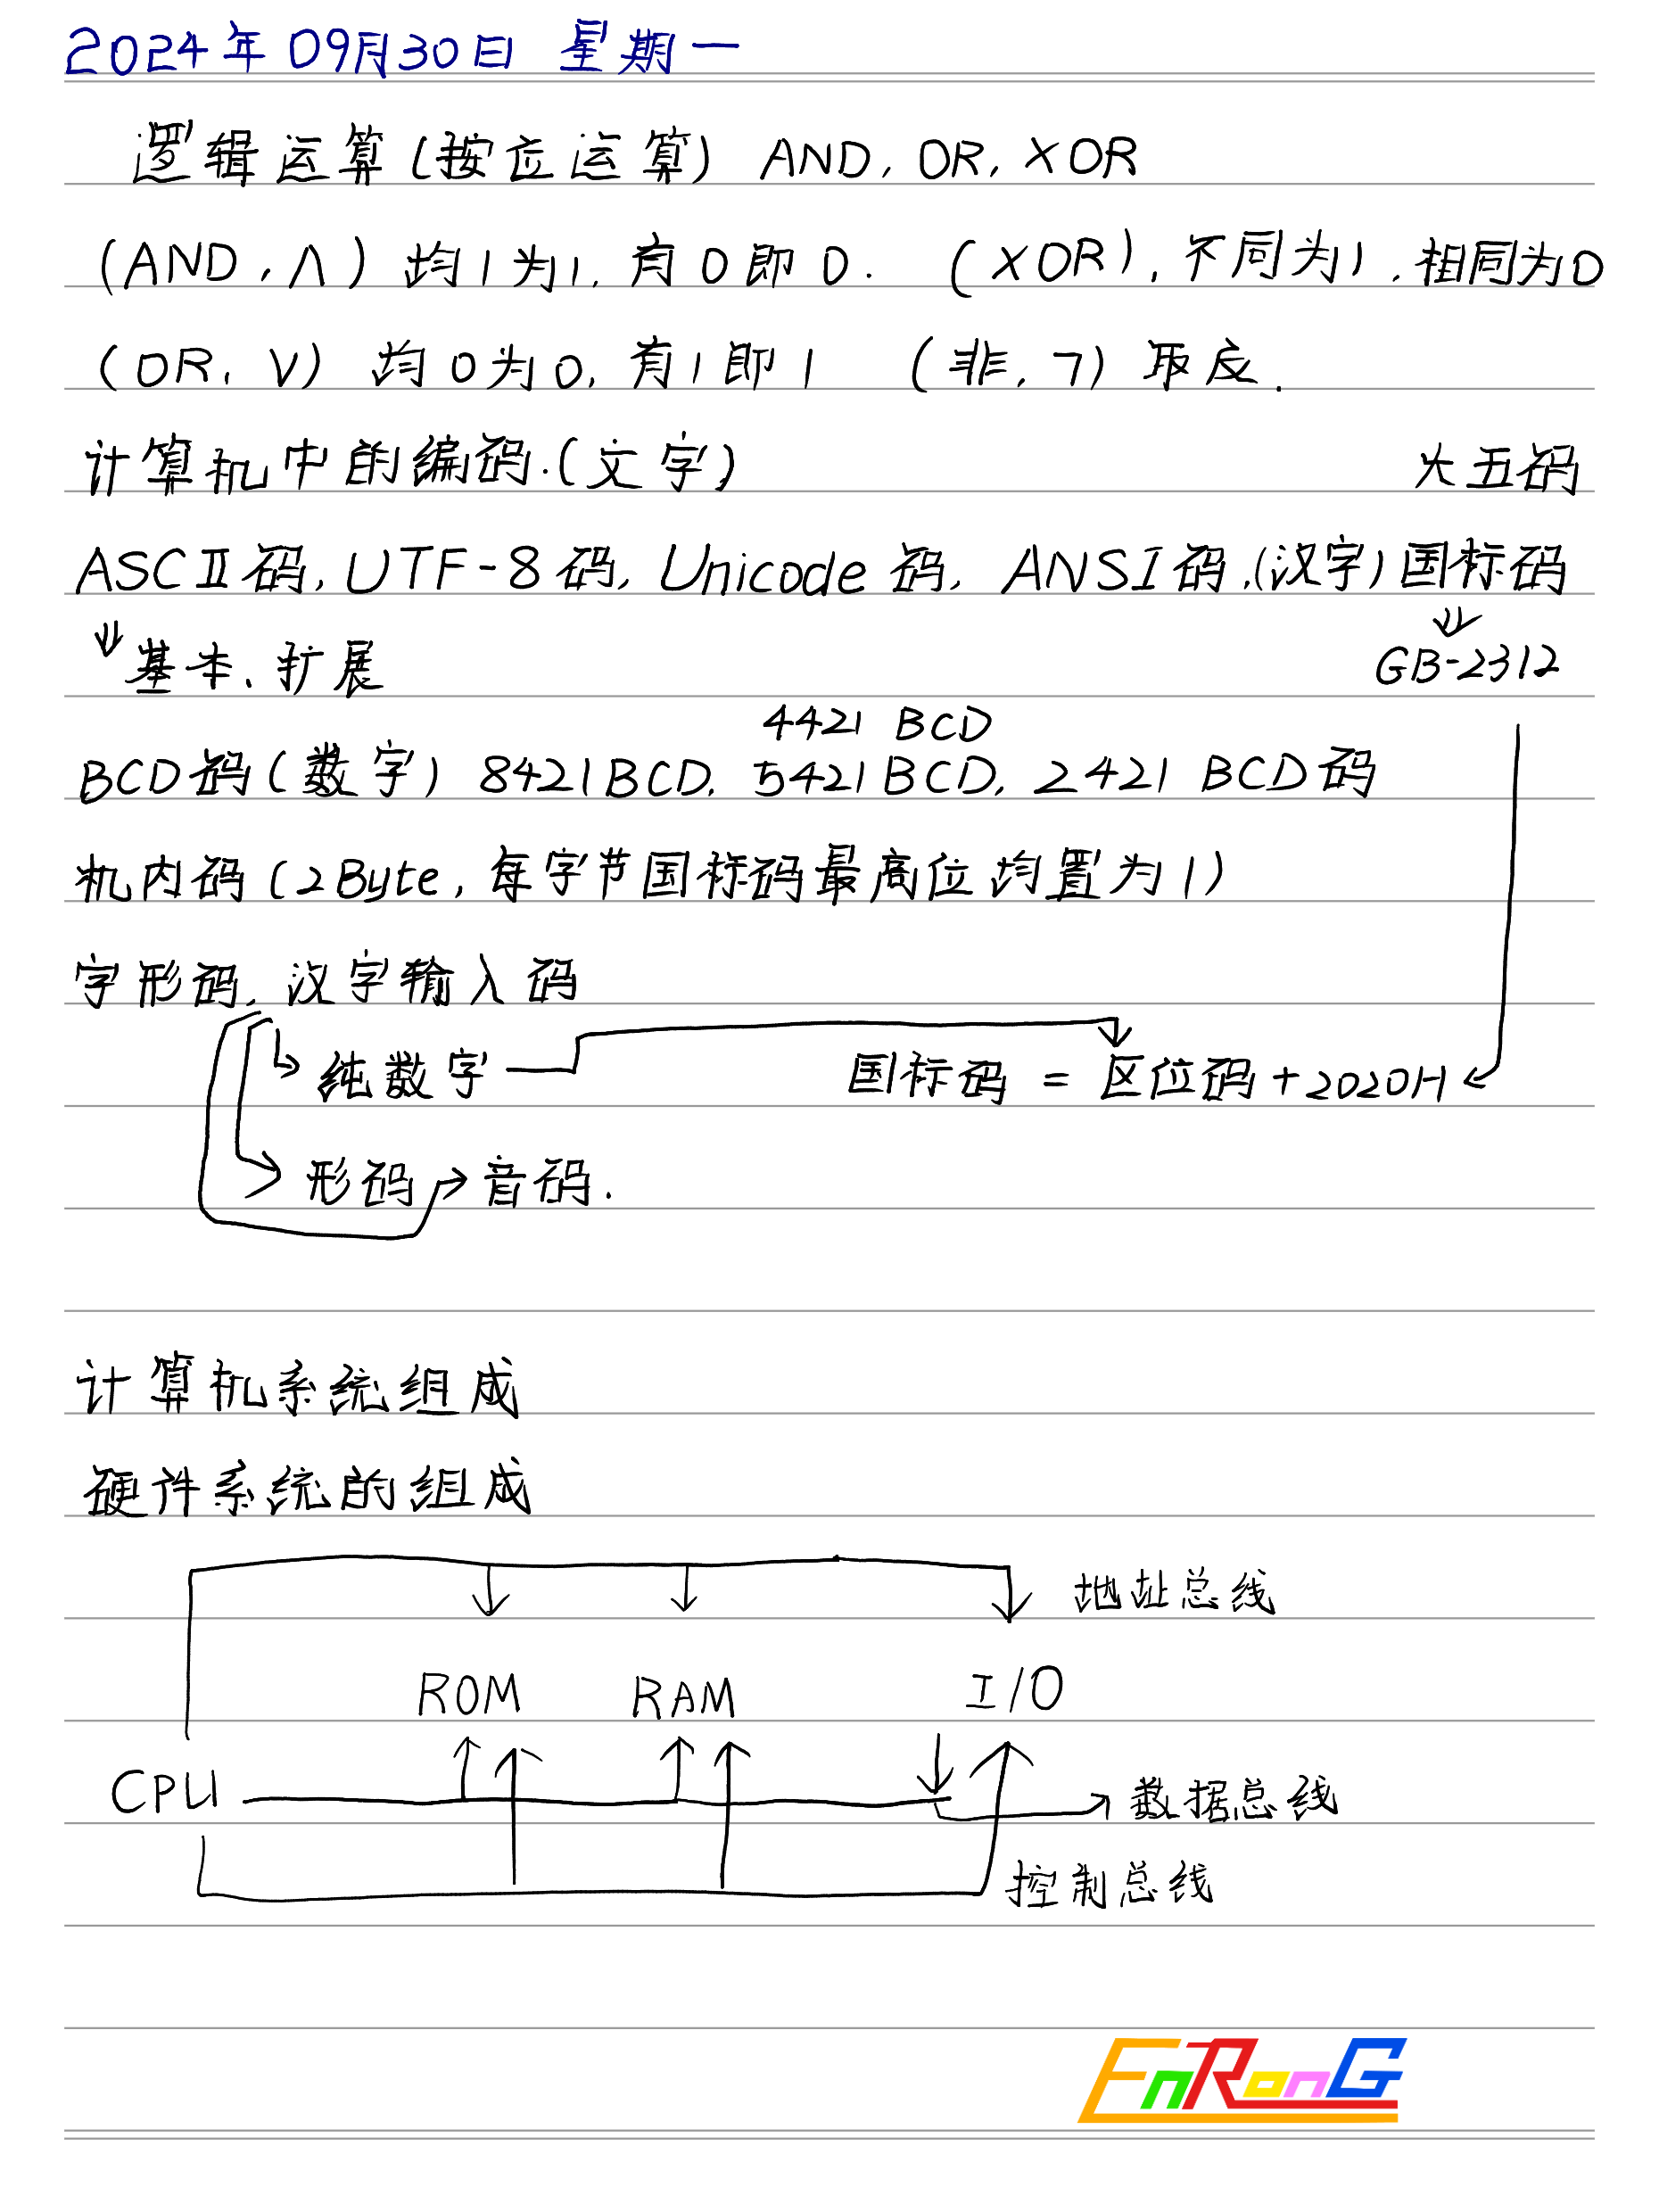 2024年09月30日 星期一
逻辑运算(按位运算) AND, OR, XOR
(AND, ∧) 均1为1, 有0即0. (XOR), 不同为1, 相同为0
(OR, ∨) 均0为0, 有1即1 (非, ㄱ) 取反.
计算机中的编码.(文字) 大五码
ASCⅡ码, UTF-8码, Unicode码, ANSI码,(汉字)国标码
⇓基本、扩展 ⇓ GB-2312
4421 BCD
BCD码(数字) 8421BCD, 5421BCD, 2421 BCD码
机内码(2Byte, 每字节国标码最高位均置为1)
字形码, 汉字输入码
→纯数字 国标码 = 区位码+2020H
→形码→音码.
计算机系统组成
硬件系统的组成
地址总线
ROM RAM I/O
CPU 数据总线
控制总线
EnRonG